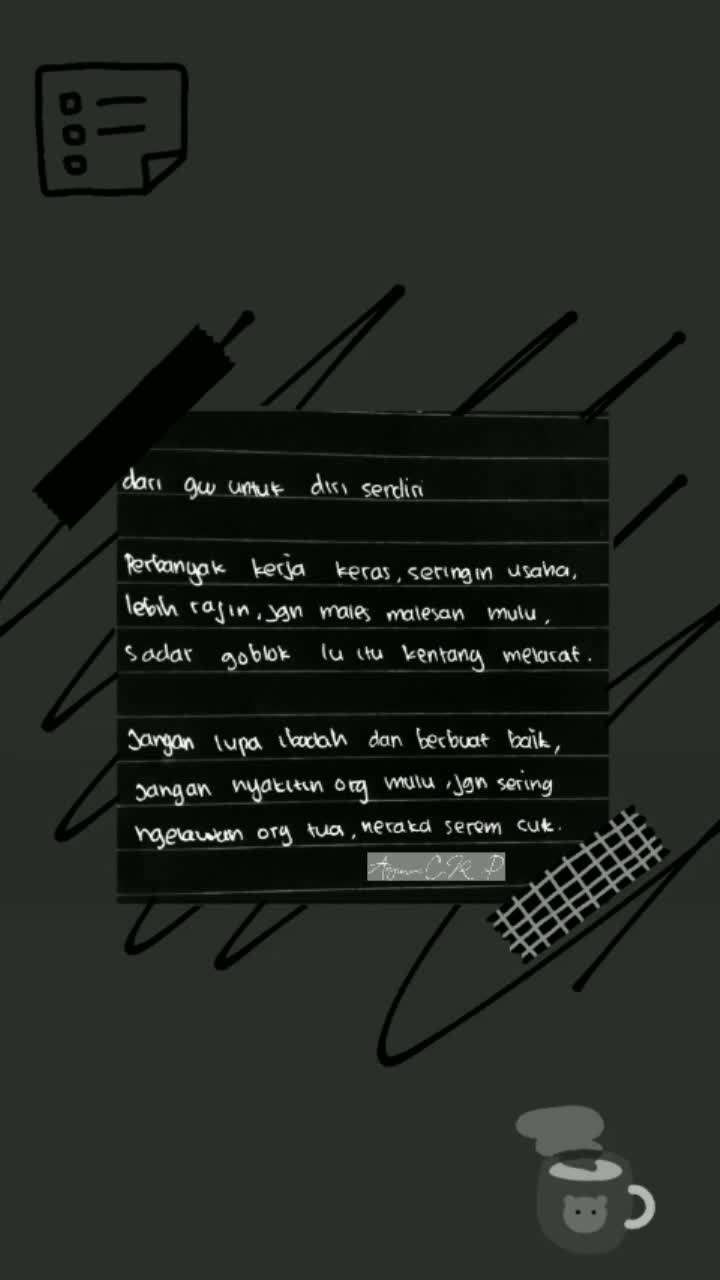 dari gw untuk diri serdiri
Perbanyak kerja keras, seringin usaha,
lebih rajin, jgn males malesan mulu,
sadar goblok lu itu kentang melarat.
Jangan lupa ibadah dan berbuat baik,
jangan nyakitin org mulu, jgn sering
ngelawan org tua, neraka serem cuk.
C.R.P